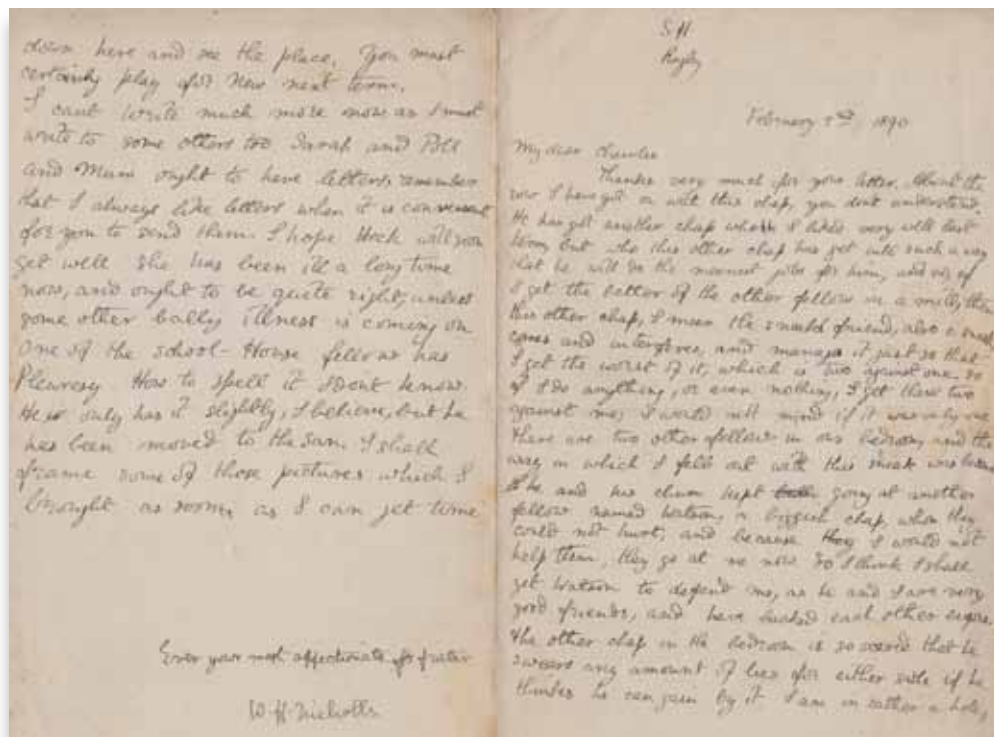 down here and see the place. You must
certainly play for New next term.
I cant write much more now as I must
write to some others too Sarah and Poll
and Mum ought to have letters, remember
that I always like letters when it is convenient
for you to send them. I hope will soon
get well she has been ill a long time
now, and ought to be quite right, unless
some other bally illness is coming on
One of the School-House fellows has
Pleuresy How to spell it I dont know.
He only has it slightly, I believe, but he
has been moved to the San. I shall
frame some of those pictures which I
brought as soon as I can get time
Ever your most affectionate frater
W H Nicholls
S H
Rugby
February 2nd, 1890
My dear Charlie
Thanks very much for your letter. About the
row I have got in with this chap, you dont understand.
He has got another chap whom I liked very well last
term, but who this other chap has got into such a way
that he will do the meanest jobs for him, and so if
I get the better of the other fellow in a mill, then
this other chap, I mean the sneaks friend, also a sneak
comes and interferes, and manages it just so that
I get the worst of it, which is two against one. so
if I do anything, or even nothing, I get these two
against me, I would not mind if it was only one
There are two other fellows in our bedroom, and the
way in which I fell out with this sneak was because
he and his chum kept going at another
fellow named Watson, a biggish chap, whom they
could not hurt, and because I would not
help them, they go at me now so I think I shall
get Watson to defend me, as he and I are very
good friends, and have backed each other
the other chap in the bedroom is so scared that he
swears any amount of lies for either side if he
thinks he can gain by it I am in rather a hole,